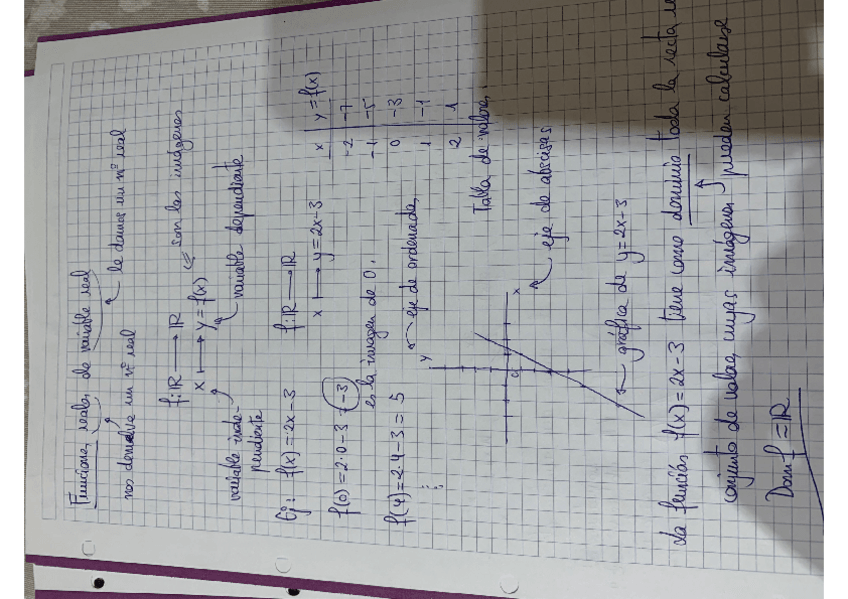 Funciones reales de variable real
nos devuelve un nº real
le damos un nº real
f: ℝ ⟶ ℝ
x ⟼ y = f(x) ⇐ son las imágenes
variable inde-
pendiente
variable dependiente
Ej: f(x) = 2x - 3
f: ℝ ⟶ ℝ
x ⟼ y = 2x - 3
f(0) = 2·0 - 3 = -3
es la imagen de 0.
f(4) = 2·4 - 3 = 5
⋮
x | y = f(x)
-2 | -7
-1 | -5
0 | -3
1 | -1
2 | 1
Tabla de valores
eje de ordenadas
y
x
0
eje de abscisas
gráfica de y = 2x - 3
La función f(x) = 2x - 3 tiene como dominio toda la recta
conjunto de valores cuyas imágenes pueden calcularse
Dom f = ℝ